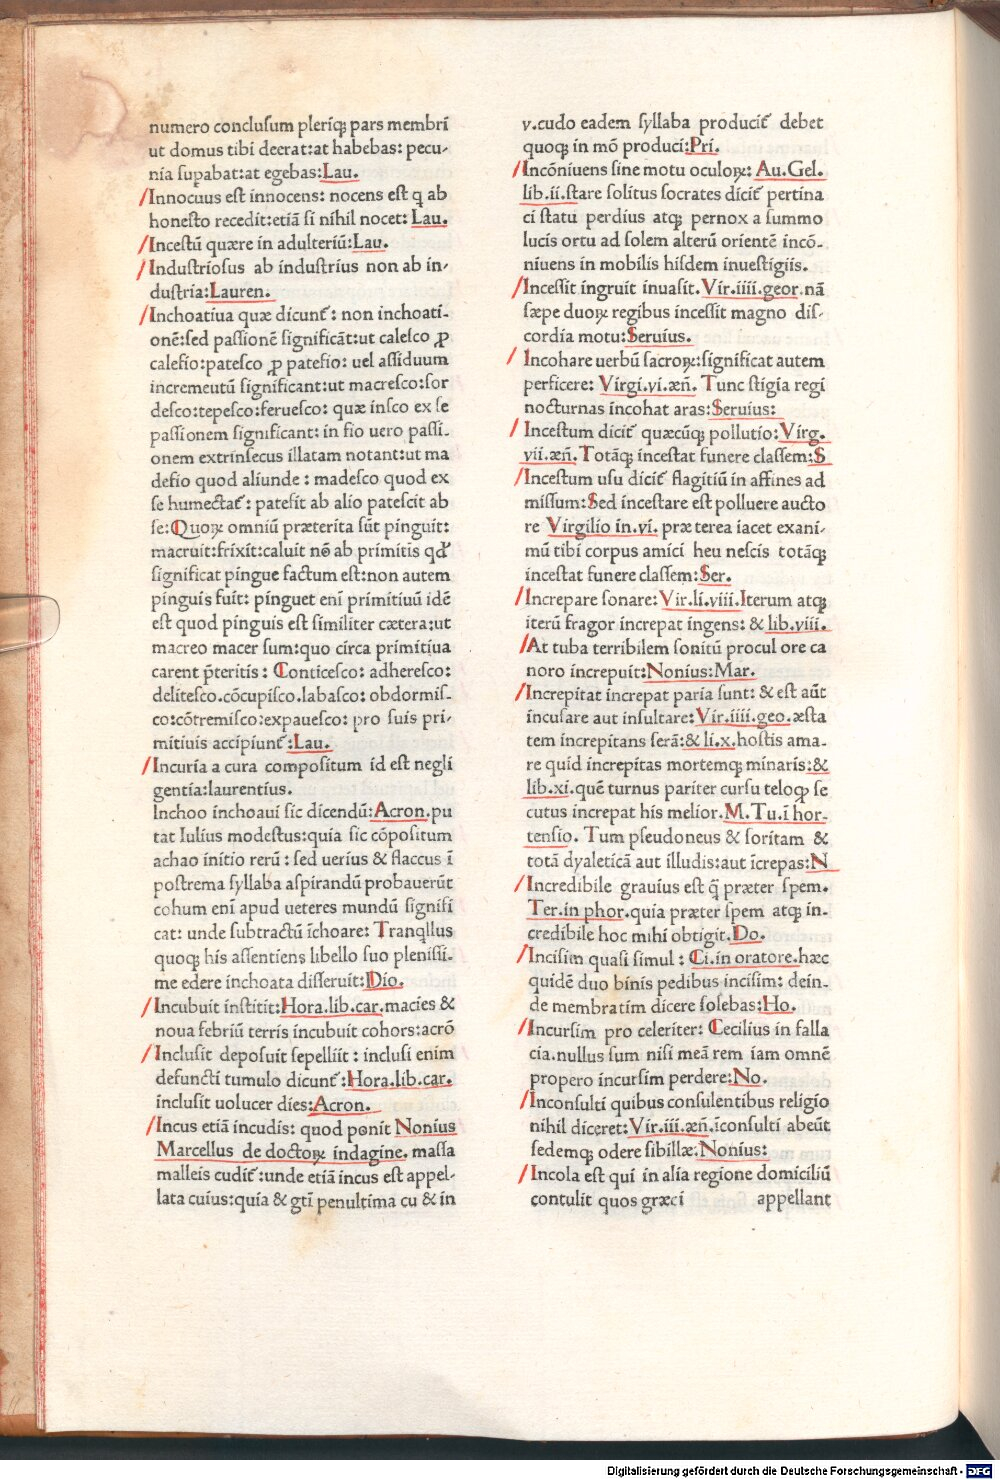 numero conclusum pleriqꝫ pars membri
ut domus tibi deerat:at habebas: pecu-
nia supabat:at egebas:Lau.
Innocuus est innocens: nocens est q ab
honesto recedit:etiã si nihil nocet: Lau.
Incestũ quære in adulteriũ:Lau.
Industriosus ab industrius non ab in-
dustria:Lauren.
Inchoatiua quæ dicunt̃: non inchoati-
onẽ:sed passionẽ significãt:ut calesco ꝓ
calefio:patesco ꝓ patefio: uel assiduum
incremeutũ significant:ut macresco:sor
desco:tepesco:feruesco: quæ insco ex se
passionem significant: in fio uero passi-
onem extrinsecus illatam notant:ut ma
defio quod aliunde : madesco quod ex
se humectat̃: patefit ab alio patescit ab
se:Quoꝝ omniũ præterita sũt pinguit:
macruit:frixit:caluit nõ ab primitis qd̃
significat pingue factum est:non autem
pinguis fuit: pinguet eni primitiuũ idẽ
est quod pinguis est similiter cætera:ut
macreo macer sum:quo circa primitiua
carent p̃teritis : Conticesco: adheresco:
delitesco.cõcupisco.labasco: obdormis-
co:cõtremisco:expauesco: pro suis pri-
mitiuis accipiunt̃:Lau.
Incuria a cura compositum id est negli
gentia:laurentius.
Inchoo inchoaui sic dicendũ:Acron.pu
tat Iulius modestus:quia sic cõpositum
achao initio rerũ : sed uerius & flaccus ĩ
postrema syllaba aspirandũ probauerũt
cohum eni apud ueteres mundũ signifi
cat: unde subtractũ ĩchoare: Tranqllus
quoqꝫ his assentiens libello suo plenissi-
me edere inchoata disseruit:Dio.
Incubuit institit:Hora.lib.car.macies &
noua febriũ terris incubuit cohors:acrõ
Inclusit deposuit sepelliit : inclusi enim
defuncti tumulo dicunt̃:Hora.lib.car.
inclusit uolucer dies:Acron.
Incus etiã incudis: quod ponit Nonius
Marcellus de doctoꝝ indagine. massa
malleis cudit̃:unde etiã incus est appel-
lata cuius:quia & gti penultima cu & in
v.cudo eadem syllaba producit̃ debet
quoqꝫ in mõ produci:Pri.
Incõniuens sine motu oculoꝝ: Au.Gel.
lib.ii.stare solitus socrates dicit̃ pertina
ci statu perdius atqꝫ pernox a summo
lucis ortu ad solem alterũ orientẽ incõ-
niuens in mobilis hisdem inuestigiis.
Incessit ingruit inuasit.Vir.iiii.geor.nã
sæpe duoꝝ regibus incessit magno dis-
cordia motu:Seruius.
Incohare uerbũ sacroꝝ:significat autem
perficere: Virgi.vi.æñ. Tunc stigia regi
nocturnas incohat aras:Seruius:
Incestum dicit̃ quæcũqꝫ pollutio:Virg.
vii.æñ.Totãqꝫ incestat funere classem:S
Incestum usu dicit̃ flagitiũ in affines ad
missum:Sed incestare est polluere aucto
re Virgilio in.vi. præ terea iacet exani-
mũ tibi corpus amici heu nescis totãqꝫ
incestat funere classem:Ser.
Increpare sonare:Vir.li.viii.Iterum atqꝫ
iterũ fragor increpat ingens: & lib.viii.
At tuba terribilem sonitũ procul ore ca
noro increpuit:Nonius:Mar.
Increpitat increpat paria sunt: & est aũt
incusare aut insultare:Vir.iiii.geo.æsta
tem increpitans serã:& li.x.hostis ama-
re quid increpitas mortemqꝫ minaris:&
lib.xi.quẽ turnus pariter cursu teloqꝫ se
cutus increpat his melior.M.Tu.ĩ hor-
tensio. Tum pseudoneus & soritam &
totã dyaleticã aut illudis:aut ĩcrepas:N
Incredibile grauius est q̃ præter spem.
Ter.in phor.quia præter spem atqꝫ in-
credibile hoc mihi obtigit.Do.
Incisim quasi simul : Ci.in oratore.hæc
quidẽ duo binis pedibus incisim: dein-
de membratim dicere solebas:Ho.
Incursim pro celeriter: Cecilius in falla
cia.nullus sum nisi meã rem iam omnẽ
propero incursim perdere:No.
Inconsulti quibus consulentibus religio
nihil diceret:Vir.iii.æñ.ĩconsulti abeũt
sedemqꝫ odere sibillæ.Nonius:
Incola est qui in alia regione domiciliũ
contulit quos græci appellant
Digitalisierung gefördert durch die Deutsche Forschungsgemeinschaft - DFG